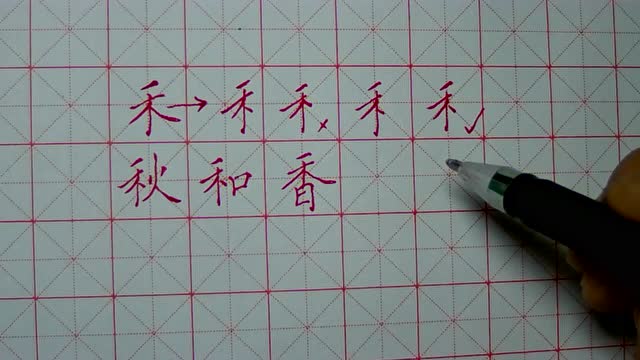 禾→禾禾×禾禾✓
秋和香